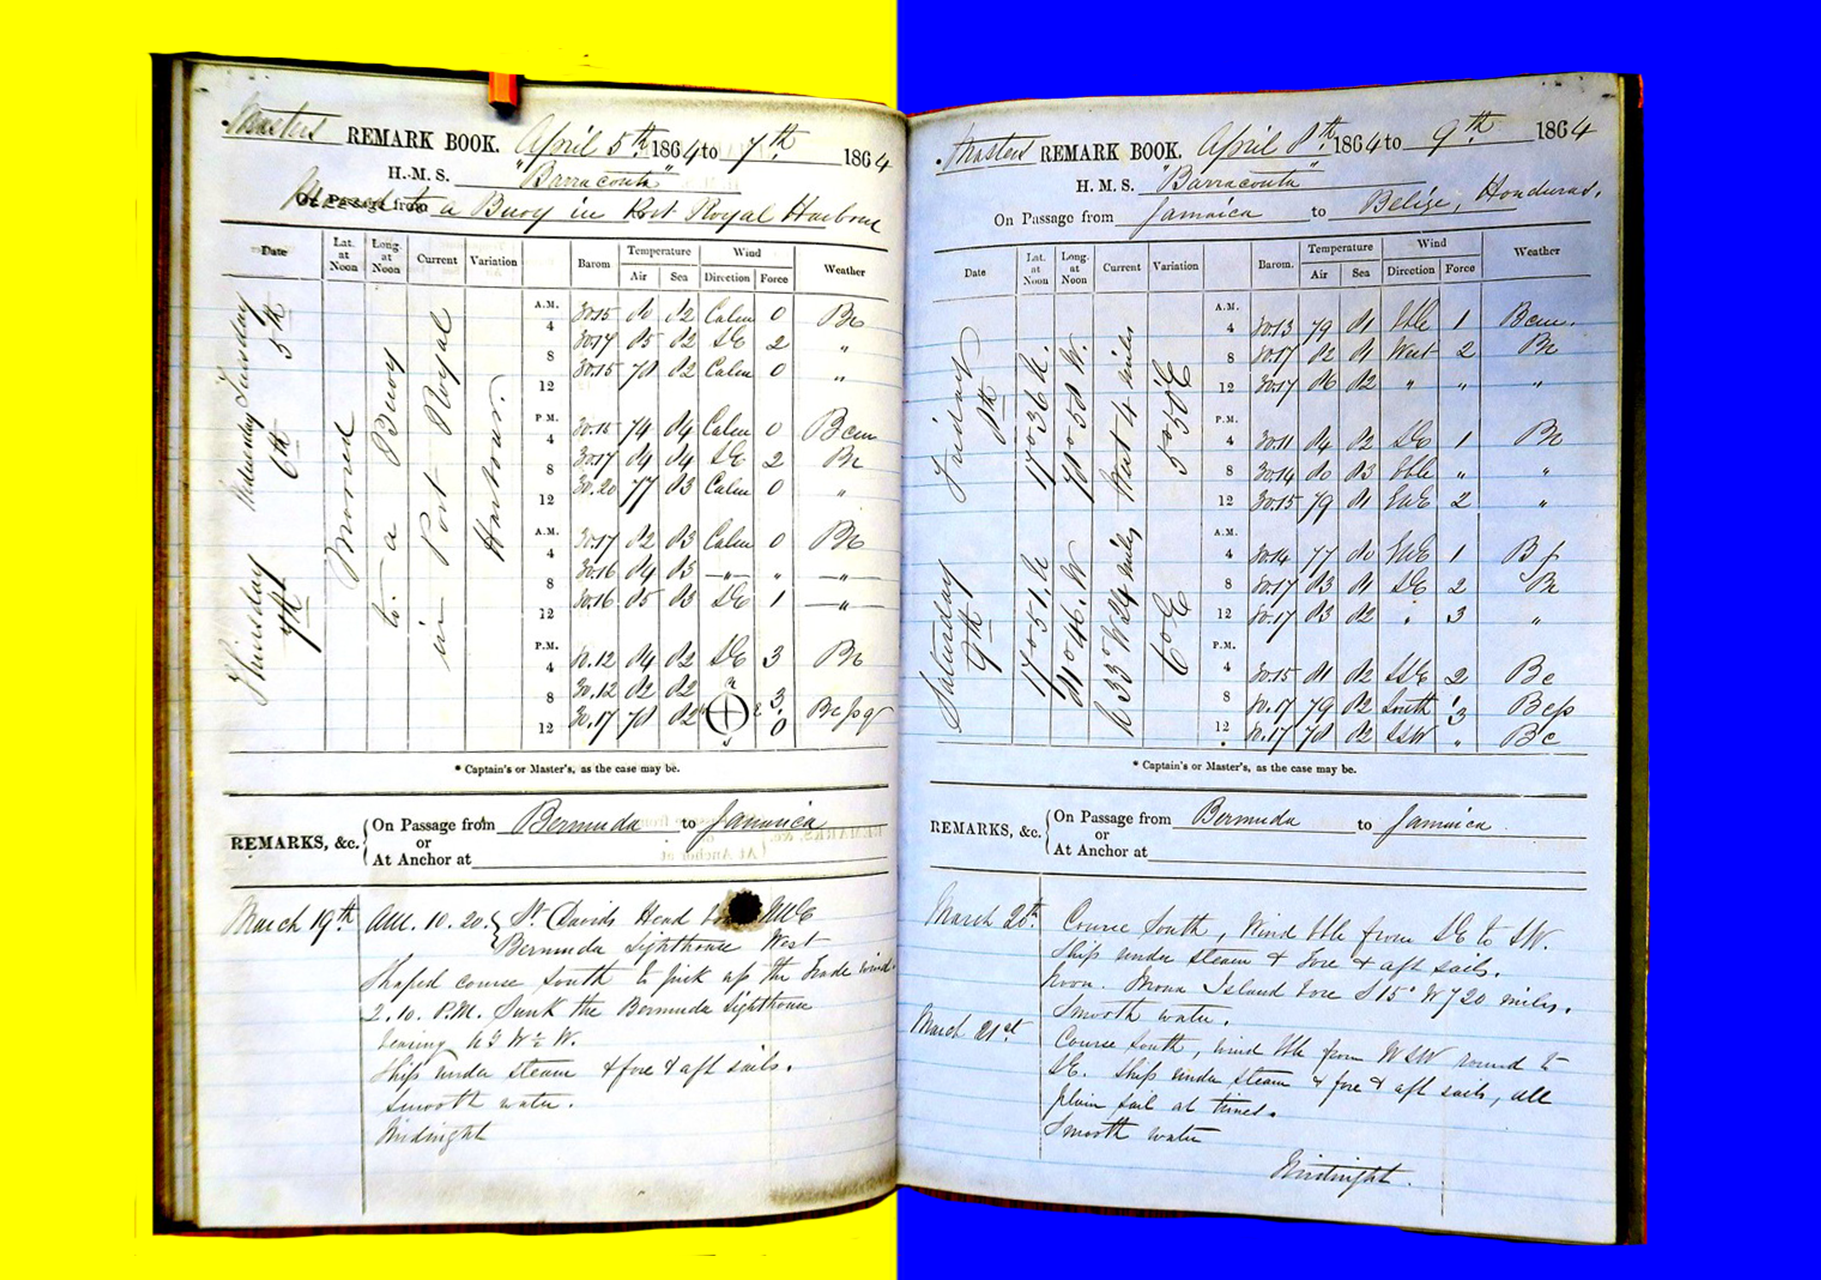 Masters REMARK BOOK. April 5th 1864 to 7th 1864
H.M.S. "Barracouta"
On Passage from
Moored to a Buoy in Port Royal Harbour
Date Lat. at Noon Long. at Noon Current Variation Barom. Temperature Air Sea Wind Direction Force Weather
Tuesday 5th
Wednesday 6th
Thursday 7th
Moored
to a Buoy
in Port Royal
Harbour.
A.M.
4 30.15 80 82 Calm 0 Bc
8 30.17 85 82 SE 2 "
12 30.15 78 82 Calm 0 "
P.M.
4 30.15 74 84 Calm 0 Bcm
8 30.17 84 84 SE 2 Bc
12 30.20 77 83 Calm 0 "
A.M.
4 30.17 82 83 Calm 0 Bc
8 30.16 84 83 " " "
12 30.16 85 83 SE 1 "
P.M.
4 30.12 84 82 SE 3 Bc
8 30.12 82 82 " 3
12 30.17 78 82 0 Bcpq
* Captain's or Master's, as the case may be.
REMARKS, &c. On Passage from Bermuda to Jamaica
or
At Anchor at
March 19th AM. 10.20. St Davids Head NWE
Bermuda Lighthouse West
Shaped course South to pick up the Trade wind.
2.10. P.M. Sunk the Bermuda Lighthouse
bearing W.
Ship under steam & fore & aft sails.
Smooth water.
Midnight
Masters REMARK BOOK. April 8th 1864 to 9th 1864
H.M.S. "Barracouta"
On Passage from Jamaica to Belize, Honduras.
Date Lat. at Noon Long. at Noon Current Variation Barom. Temperature Air Sea Wind Direction Force Weather
Friday 8th
17°36 N.
78°58 W.
West 4 miles
5°50'E
Saturday 9th
17°51. N
81°46. W
N 33° W 24 miles
6°E
A.M.
4 30.13 79 81 Vble 1 Bcm.
8 30.17 82 81 West 2 Bc
12 30.17 86 82 " " "
P.M.
4 30.11 84 82 SE 1 Bc
8 30.14 80 83 Vble " "
12 30.15 79 81 ENE 2 "
A.M.
4 30.14 77 80 ENE 1 B
8 30.17 83 81 SE 2 Bc
12 30.17 83 82 " 3 "
P.M.
4 30.15 81 82 SSE 2 Bc
8 30.17 79 82 South 3 Bcp
12 30.17 78 82 SSW " Bc
* Captain's or Master's, as the case may be.
REMARKS, &c. On Passage from Bermuda to Jamaica
or
At Anchor at
March 20th. Course South, Wind Vble from SE to SW.
Ship under steam & fore & aft sails.
Noon. Mona Island bore S 15° W 720 miles.
Smooth water.
March 21st. Course South, wind Vble from WSW round to
SE. Ship under steam & fore & aft sails, all
plain sail at times.
Smooth water
Midnight.